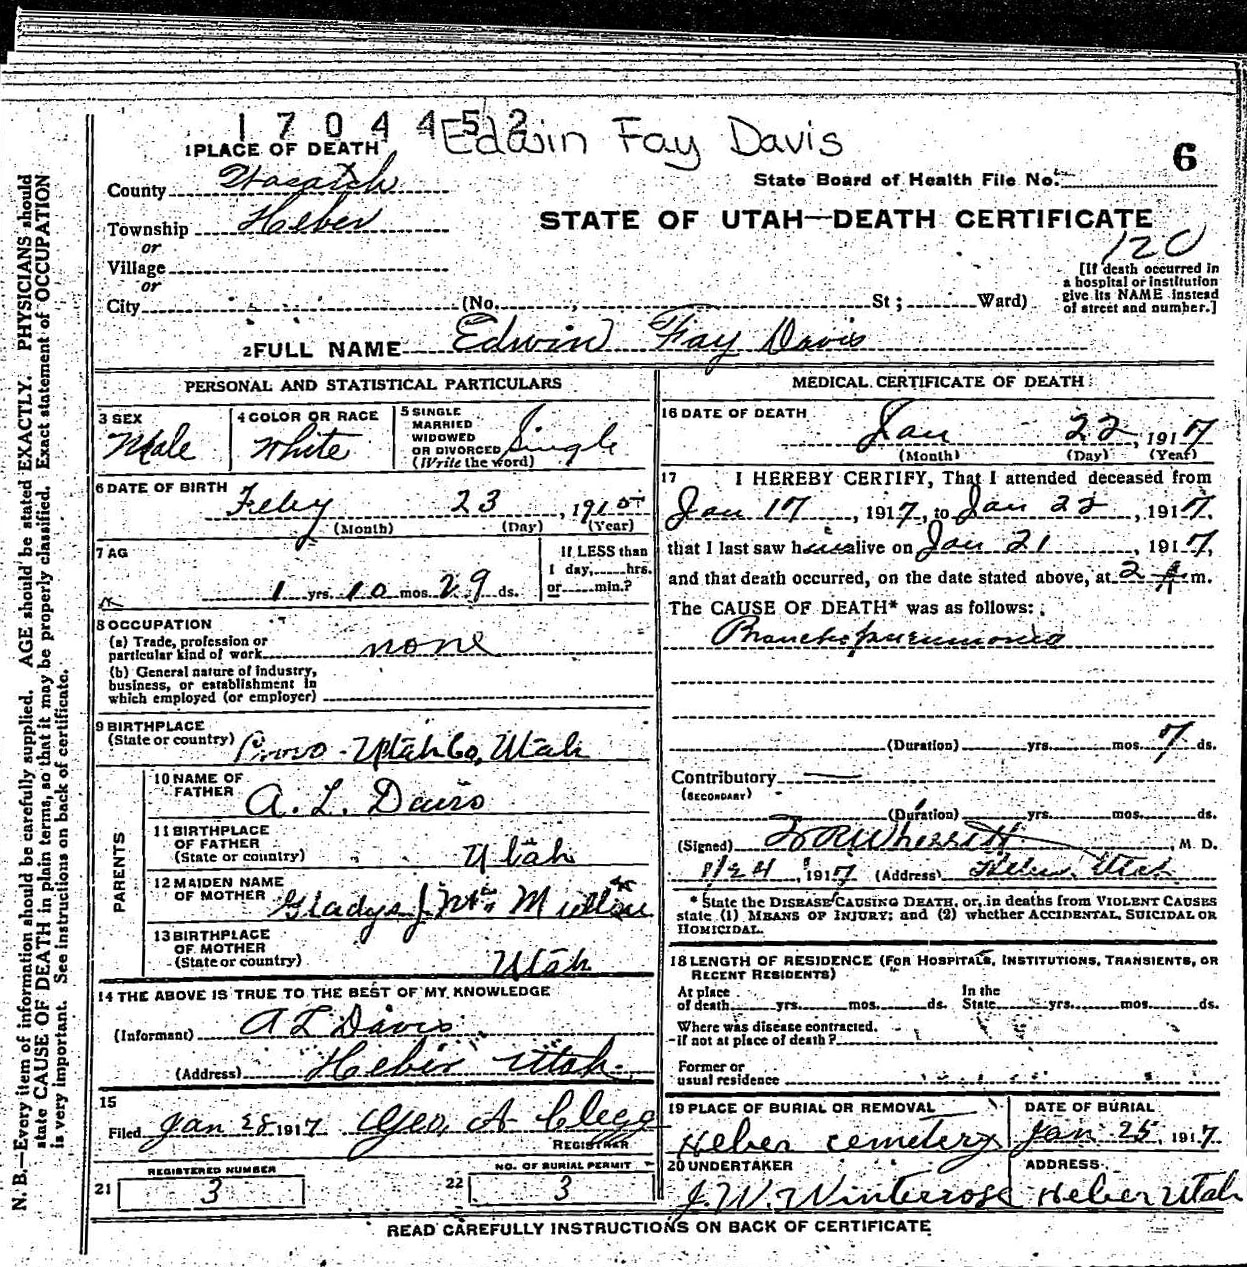 1704452 Edwin Fay Davis
1 PLACE OF DEATH
6
County Wasatch
State Board of Health File No.
Township Heber
STATE OF UTAH—DEATH CERTIFICATE
or
120
Village
or
City (No. St ; Ward)
[If death occurred in
a hospital or institution
give its NAME instead
of street and number.]
2 FULL NAME Edwin Fay Davis
PERSONAL AND STATISTICAL PARTICULARS
3 SEX
Male
4 COLOR OR RACE
White
5 SINGLE
MARRIED
WIDOWED
OR DIVORCED
(Write the word)
Single
6 DATE OF BIRTH
Feby 23, 1915
(Month) (Day) (Year)
7 AG
1 yrs. 10 mos. 29 ds.
If LESS than
1 day, hrs.
or min.?
8 OCCUPATION
(a) Trade, profession or
particular kind of work none
(b) General nature of industry,
business, or establishment in
which employed (or employer)
9 BIRTHPLACE
(State or country) Provo - Utah Co, Utah
PARENTS
10 NAME OF
FATHER
A. L. Davis
11 BIRTHPLACE
OF FATHER
(State or country) Utah
12 MAIDEN NAME
OF MOTHER Gladys J.
13 BIRTHPLACE
OF MOTHER
(State or country) Utah
14 THE ABOVE IS TRUE TO THE BEST OF MY KNOWLEDGE
(Informant) A L Davis
(Address) Heber Utah
15
Filed Jan 28 1917 Geo A Clegg
REGISTRAR
REGISTERED NUMBER
21 3
NO. OF BURIAL PERMIT
22 3
MEDICAL CERTIFICATE OF DEATH
16 DATE OF DEATH
Jan 22, 1917
(Month) (Day) (Year)
17 I HEREBY CERTIFY, That I attended deceased from
Jan 17, 1917, to Jan 22, 1917.
that I last saw h alive on Jan 21, 1917,
and that death occurred, on the date stated above, at 2 A m.
The CAUSE OF DEATH* was as follows:
Broncho pneumonia
(Duration) yrs. mos. 7 ds.
Contributory
(SECONDARY)
(Duration) yrs. mos. ds.
(Signed) W R Wherritt, M. D.
1/24, 1917 (Address) Heber, Utah
* State the DISEASE CAUSING DEATH, or, in deaths from VIOLENT CAUSES
state (1) MEANS OF INJURY; and (2) whether ACCIDENTAL, SUICIDAL OR
HOMICIDAL.
18 LENGTH OF RESIDENCE (FOR HOSPITALS, INSTITUTIONS, TRANSIENTS, OR
RECENT RESIDENTS)
At place
of death yrs. mos. ds.
In the
State yrs. mos. ds.
Where was disease contracted.
if not at place of death?
Former or
usual residence
19 PLACE OF BURIAL OR REMOVAL
Heber cemetery
DATE OF BURIAL
Jan 25, 1917
20 UNDERTAKER
J. W. Winterose
ADDRESS
Heber Utah
READ CAREFULLY INSTRUCTIONS ON BACK OF CERTIFICATE
N. B.—Every item of information should be carefully supplied. AGE should be stated EXACTLY. PHYSICIANS should
state CAUSE OF DEATH in plain terms, so that it may be properly classified. Exact statement of OCCUPATION
is very important. See instructions on back of certificate.